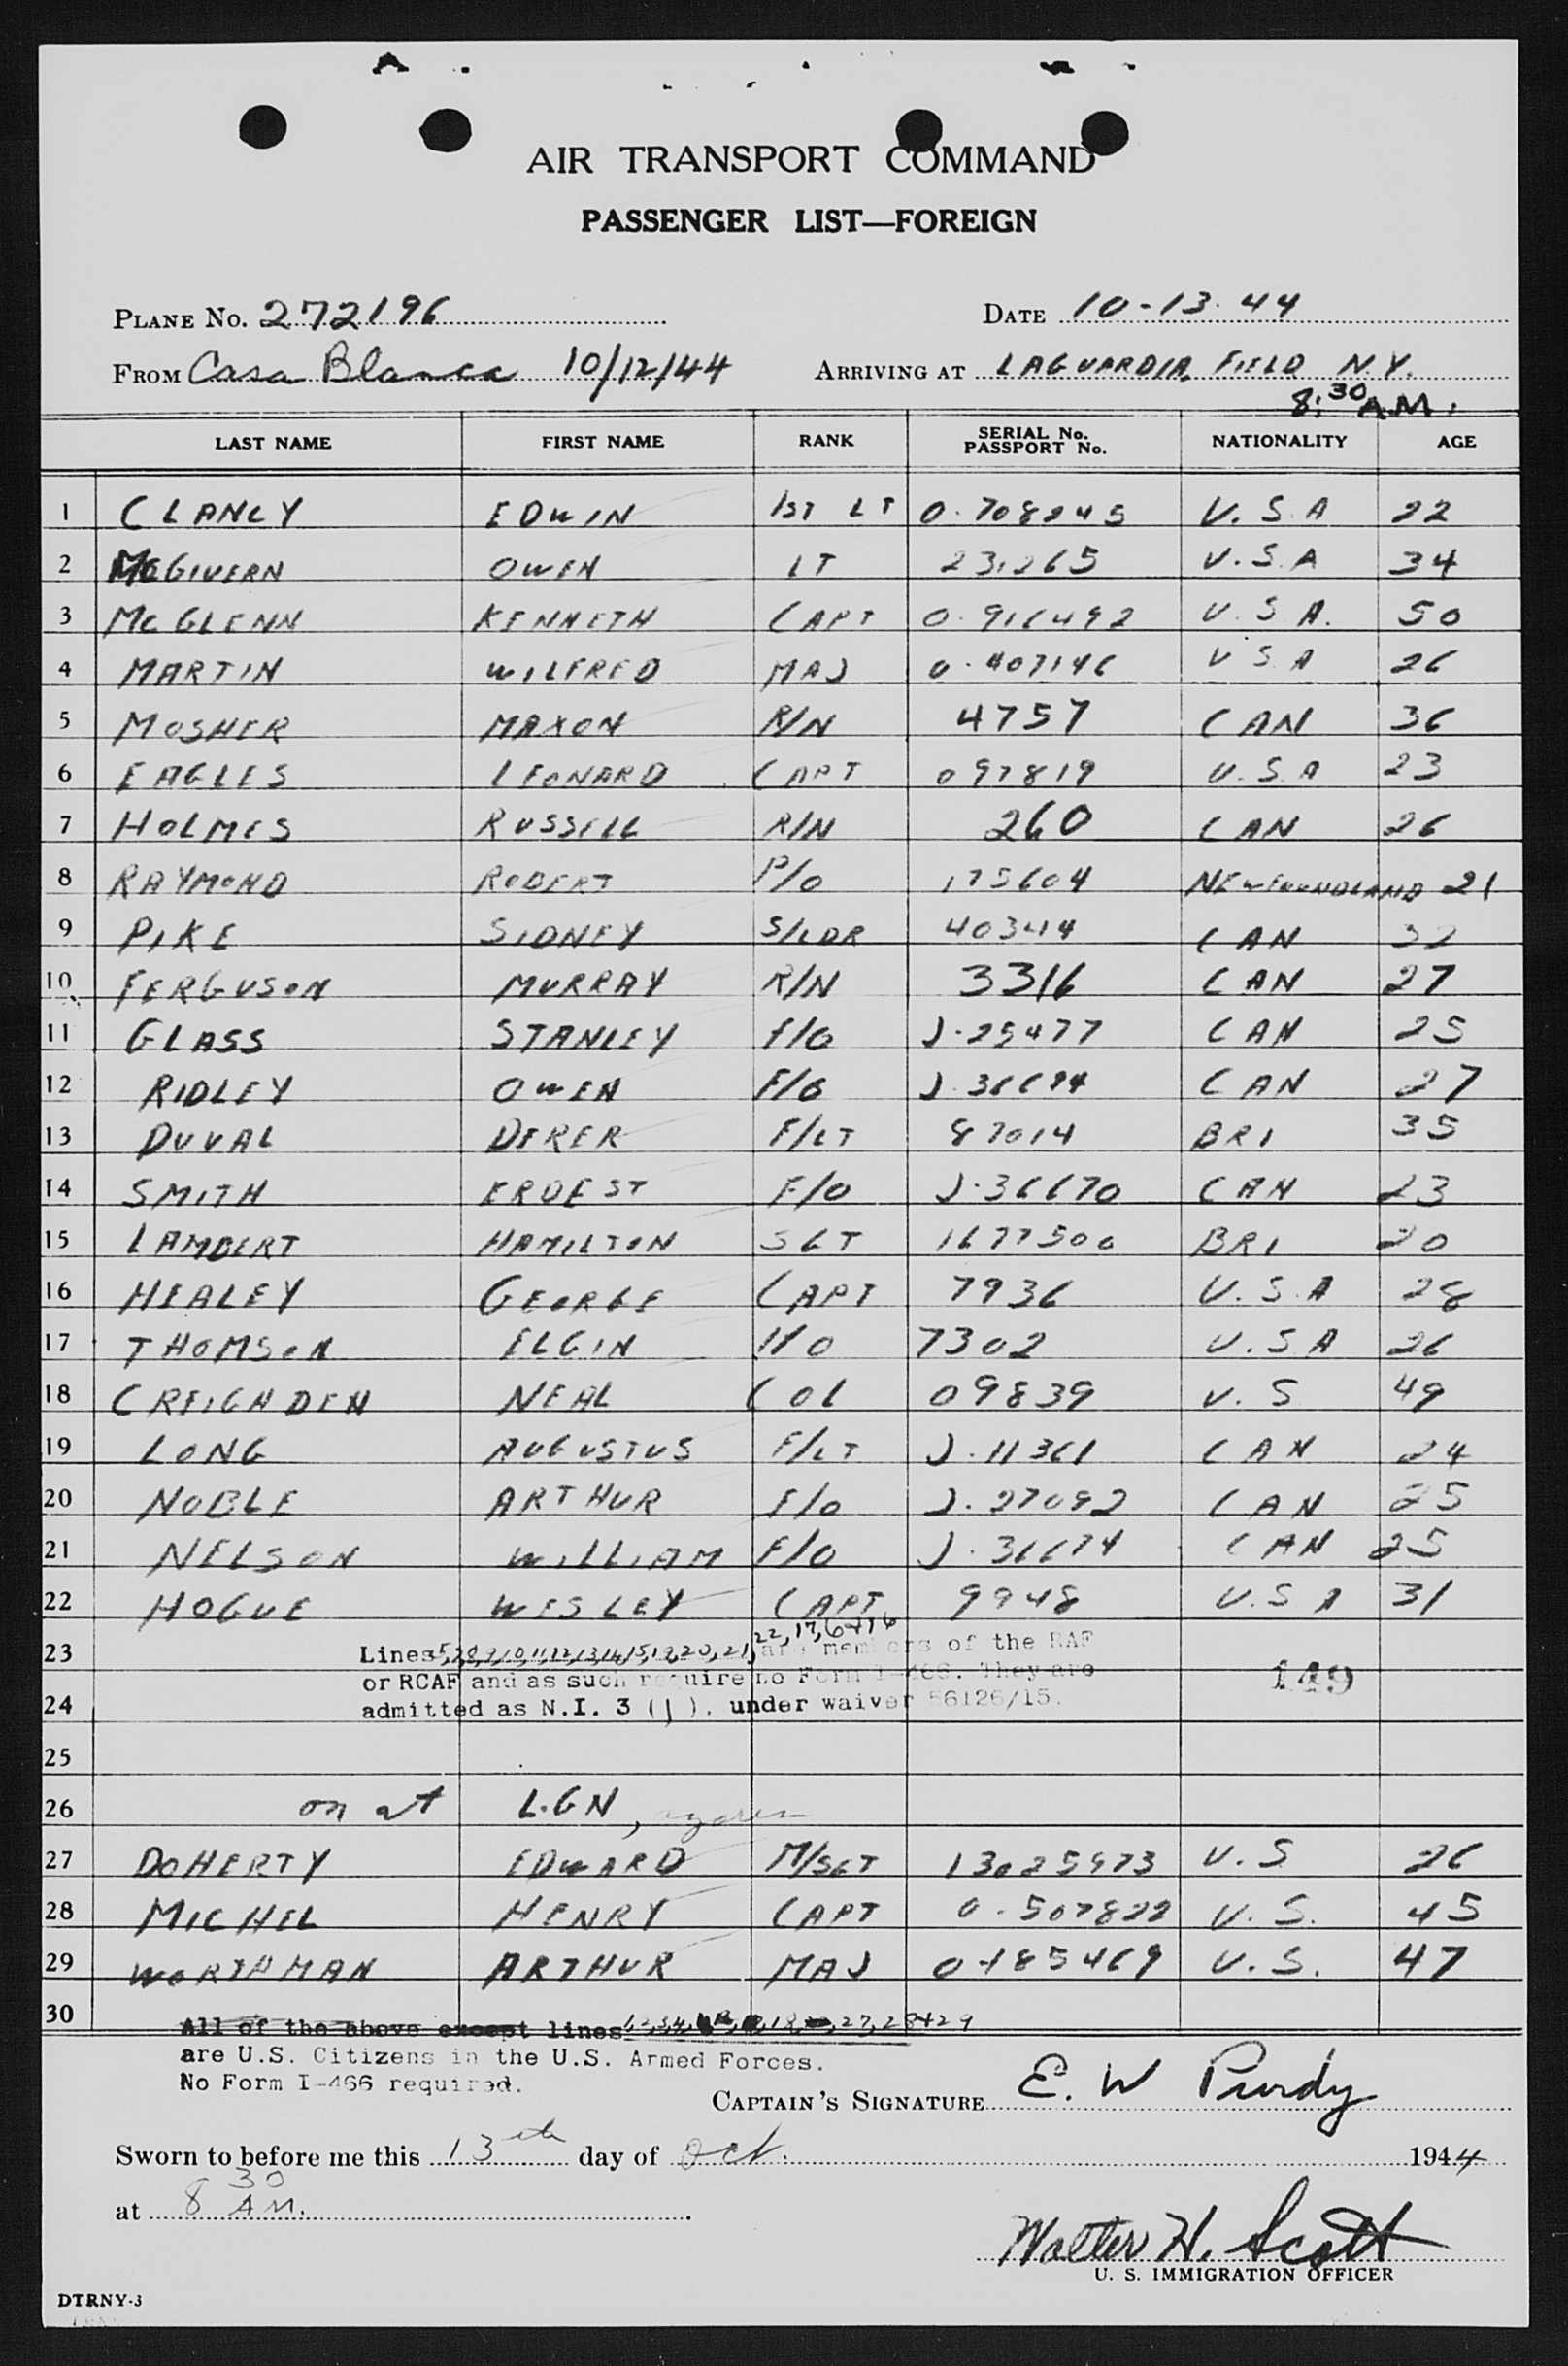 AIR TRANSPORT COMMAND
PASSENGER LIST—FOREIGN
PLANE No. 272196 DATE 10-13-44
FROM Casa Blanca 10/12/44 ARRIVING AT LAGUARDIA FIELD N.Y.
8:30 A.M.
LAST NAME FIRST NAME RANK SERIAL No. PASSPORT No. NATIONALITY AGE
1 CLANCY EDWIN 1ST LT 0-708245 U.S.A 22
2 McGIVERN OWEN LT 23265 U.S.A 34
3 McGLENN KENNETH CAPT 0-916492 U.S.A. 50
4 MARTIN WILFRED MAJ 0-407146 U S A 26
5 MOSHER MAXON R/N 4757 CAN 36
6 EAGLES LEONARD CAPT 097819 U.S.A 23
7 HOLMES RUSSELL R/N 260 CAN 26
8 RAYMOND ROBERT P/O 175604 NEWFOUNDLAND 21
9 PIKE SIDNEY S/LDR 40344 CAN 32
10 FERGUSON MURRAY R/N 3316 CAN 27
11 GLASS STANLEY F/O J-25477 CAN 25
12 RIDLEY OWEN F/O J-36694 CAN 27
13 DUVAL DERER F/LT 87014 BRI 35
14 SMITH ERDEST F/O J-36670 CAN 23
15 LAMBERT HAMILTON SGT 1677500 BRI 20
16 HEALEY GEORGE CAPT 7936 U.S.A 28
17 THOMSON ELGIN 7302 U.S.A 26
18 CREIGHDEN NEAL COL 09839 U.S 49
19 LONG AUGUSTUS F/LT J-11361 CAN 24
20 NOBLE ARTHUR F/O J-27092 CAN 25
21 NELSON WILLIAM F/O J-36674 CAN 25
22 HOGUE WESLEY CAPT 9948 U.S A 31
22, 17, 6 + 16
23 Lines 5,7,8,9,10,11,12,13,14,15,19,20,21, are members of the RAF
or RCAF and as such require no Form I-466. They are
149
24 admitted as N.I. 3 (1). under waiver 56126/15.
25
26 on at L.G.N, azores
27 DOHERTY EDWARD M/SGT 13025973 U.S 26
28 MICHEL HENRY CAPT 0-507822 U.S. 45
29 WORTHMAN ARTHUR MAJ 0185469 U.S. 47
30
All of the above except lines 1,2,3,4, 18, 27, 28 + 29
are U.S. Citizens in the U.S. Armed Forces.
No Form I-466 required.
CAPTAIN'S SIGNATURE E. W Purdy
Sworn to before me this 13th day of Oct. 1944
at 8 30 AM.
Walter H. Scott
U. S. IMMIGRATION OFFICER
DTRNY-3